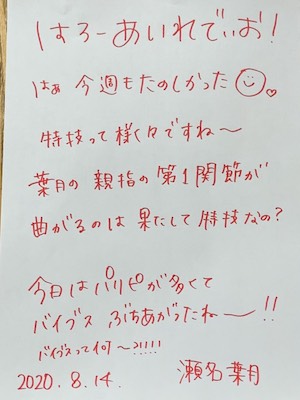 はろーあいれでぃお!
はぁ 今週もたのしかった
特技って様々ですね〜
葉月の親指の第1関節が
曲がるのは果たして特技なの?
今日はパリピが多くて
バイブス ぶちあがったね〜!!
バイブスって何〜?!!!!
2020.8.14. 瀬名葉月